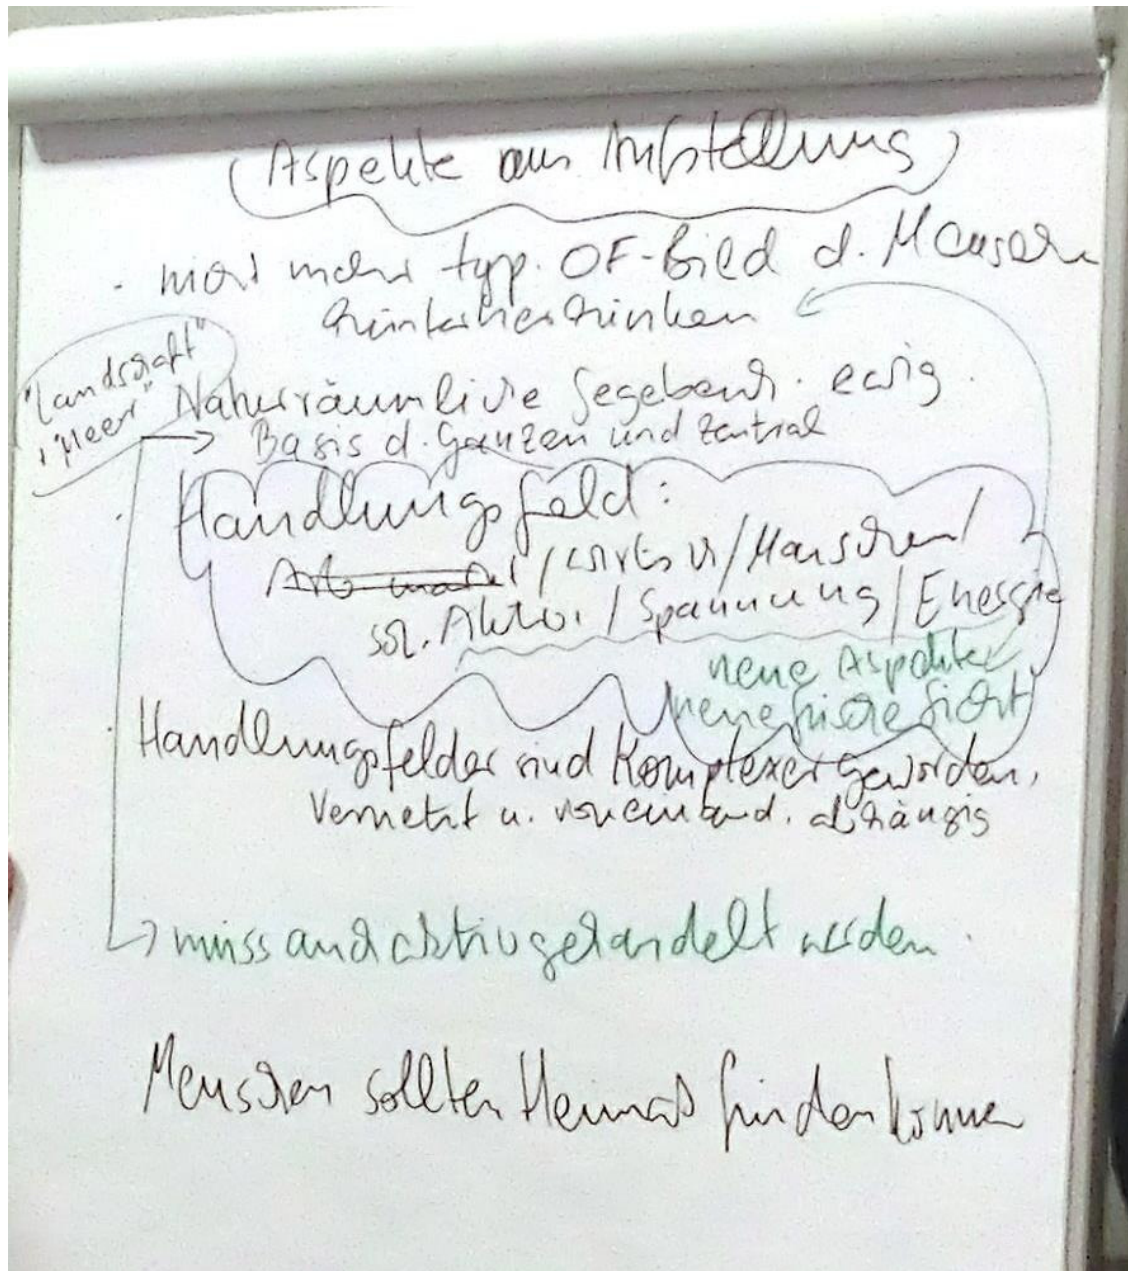 Aspekte aus Aufstellung
· nicht mehr typ. OF-Bild d. Menschen
hinterherhinken
"Landschaft"
"Meer"
Naturräumliche Gegebenh. ewig.
Basis d. Ganzen und zentral
· Handlungsfeld:
/ Menschen /
soz. Aktio. / Spannung / Energie
neue Aspekte
neue frische Sicht
Handlungsfelder sind Komplexer geworden,
Vernetzt u. voneinand. abhängig
muss auch aktiv gehandelt werden.
Menschen sollten Heimat finden können